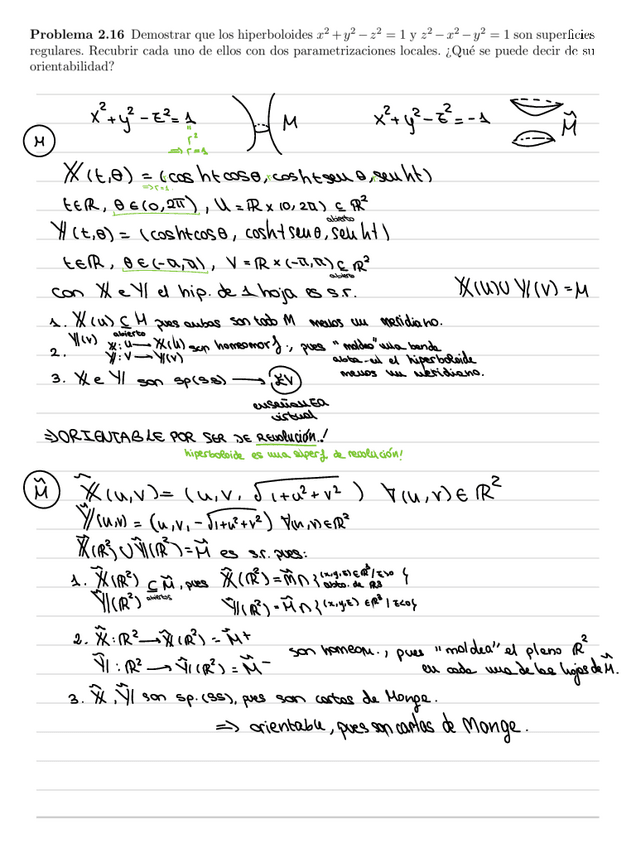 Problema 2.16 Demostrar que los hiperboloides x² + y² − z² = 1 y z² − x² − y² = 1 son superficies
regulares. Recubrir cada uno de ellos con dos parametrizaciones locales. ¿Qué se puede decir de su
orientabilidad?
x²+y²-z²=1 M x²+y²-z²=-1 M̃
r²
⇒r=1
M
X(t,θ) = (cosht cosθ, cosht senθ, senht)
⇒r=1
t∈R, θ∈(0,2π), U=R×(0,2π) ⊆ R²
abierto
Y(t,θ) = (cosht cosθ, cosht senθ, senht)
t∈R, θ∈(-π,π), V=R×(-π,π) ⊆ R²
abierto
con X e Y el hip. de 1 hoja es s.r. X(U)∪Y(V)=M
1. X(U) ⊆ M pues ambos son todo M menos un meridiano.
Y(V) abierto
2. X:U→X(U) son homeomorf., pues "moldeo" una banda
Y:V→Y(V) abta. en el hiperboloide
menos un meridiano.
3. X e Y son sp(ss) → EV
ENSEÑANZA
virtual
⇒ORIENTABLE POR SER DE REVOLUCIÓN!
hiperboloide es una superf de revolución!
M̃
X̃(u,v)=(u,v,√(1+u²+v²)) ∀(u,v)∈R²
Ỹ(u,v)=(u,v,-√(1+u²+v²)) ∀(u,v)∈R²
X̃(R²)∪Ỹ(R²)=M̃ es s.r. pues:
1. X̃(R²) ⊆ M̃, pues X̃(R²)=M̃∩{(x,y,z)∈R³/z>0}
abiertos abto. de R3
Ỹ(R²) Ỹ(R²)=M̃∩{(x,y,z)∈R³/z<0}
2. X̃:R²→X̃(R²)=M̃+
son homeom., pues "moldea" el plano R²
Ỹ:R²→Ỹ(R²)=M̃- en cada una de las hojas de M̃.
3. X̃, Ỹ son sp.(ss), pues son cartas de Monge.
⇒ orientable, pues son cartas de Monge.